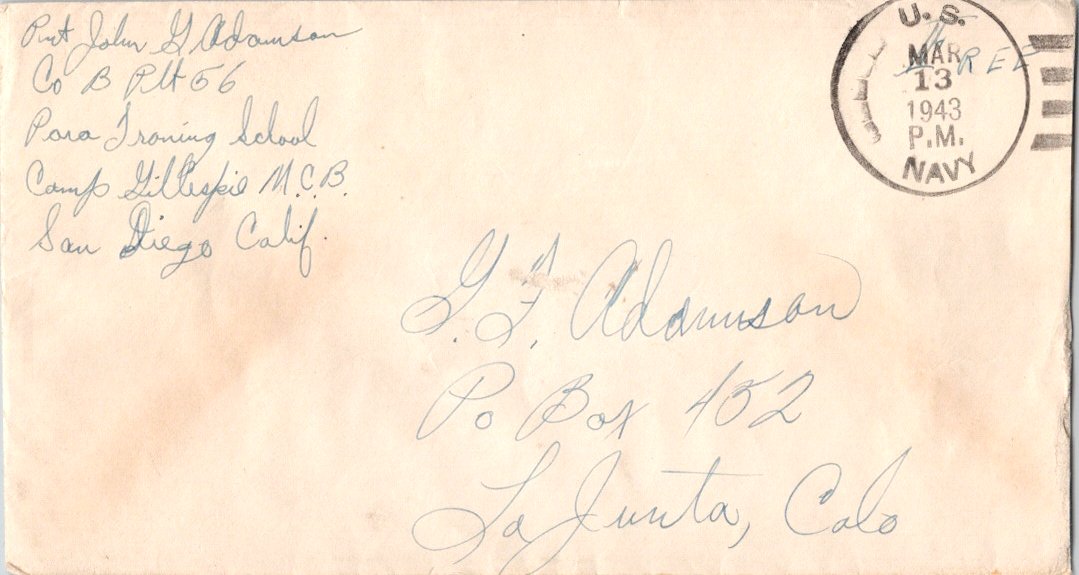 Pvt John G Adamson
Co B Plt 56
Para Traning School
Camp Gillespie M.C.B.
San Diego Calif.
U.S.
MAR
13
1943
P.M.
NAVY
FREE
G. F. Adamson
Po Box 452
La Junta, Colo